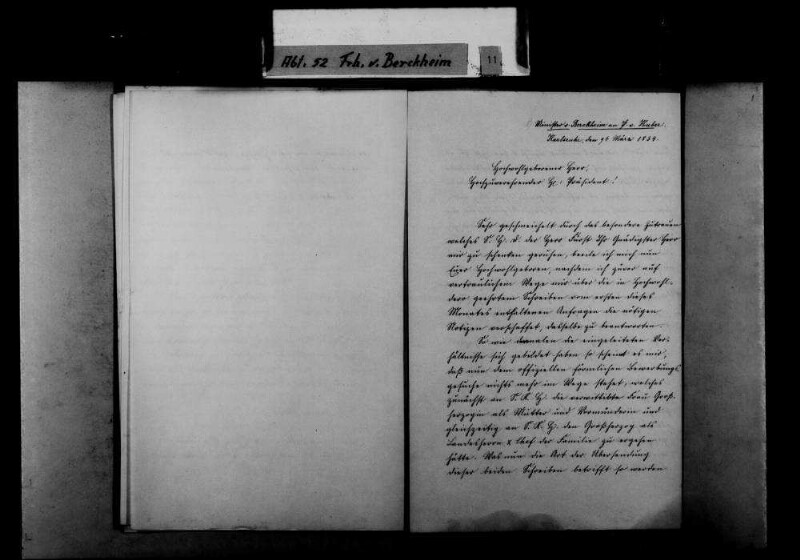 Abt. 52 Frh. v. Berckheim 11
Minister v. Berckheim an P. v. Huber.
Karlsruhe, den 16 März 1834
Hochwohlgeborener Herr,
Hochzuverehrender H: Präsident!
Sehr geschmeichelt durch das besondere Zutrauen
welches S. H. D. der Herr Fürst Ihr Gnädigster Herr
mir zu schenken geruhen, beeile ich mich nun
Euer Hochwohlgeboren, nachdem ich zuvor auf
vertraulichem Wege mir über die in Hochwohl-
dero geehrtem Schreiben vom ersten dieses
Monates enthaltenen Anfragen die nötigen
Notizen verschafft, dasselbe zu beantworten.
So wie dermalen die eingeleiteten Ver-
hältnisse sich gebildet haben so scheint es mir,
daß nun dem offiziellen förmlichen Bewerbungs
gesuche nichts mehr im Wege stehet, welches
zunächst an S. K. H. die verwittibte Frau Groß-
herzogin als Mutter und Vormünderin und
gleichzeitig an S. K. H. den Großherzog als
Landesherrn & Chef der Familie zu ergehen
hätte. Was nun die Art der Übersendung
dieser beiden Schreiben betrifft so werden